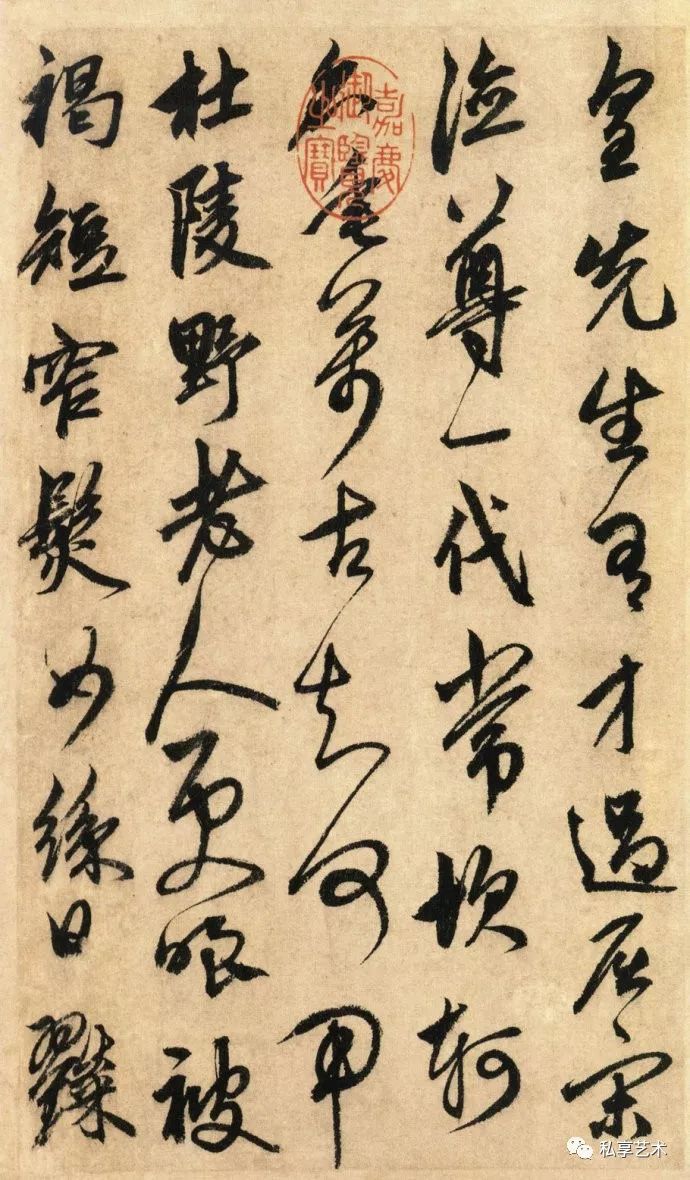 皇先生有才過屈宋
德尊一代常坎軻
名垂萬古知何用
杜陵野老人更嗤被
褐短窄鬢如絲日糴
嘉慶御覽之寶
私享艺术